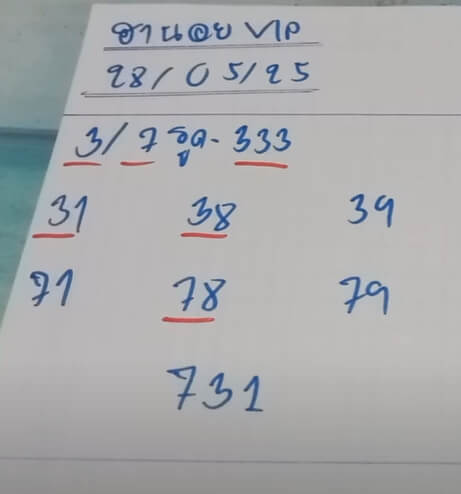 ฮานอย VIP
28/05/25
3/7 รูด- 333
31 38 39
71 78 79
731